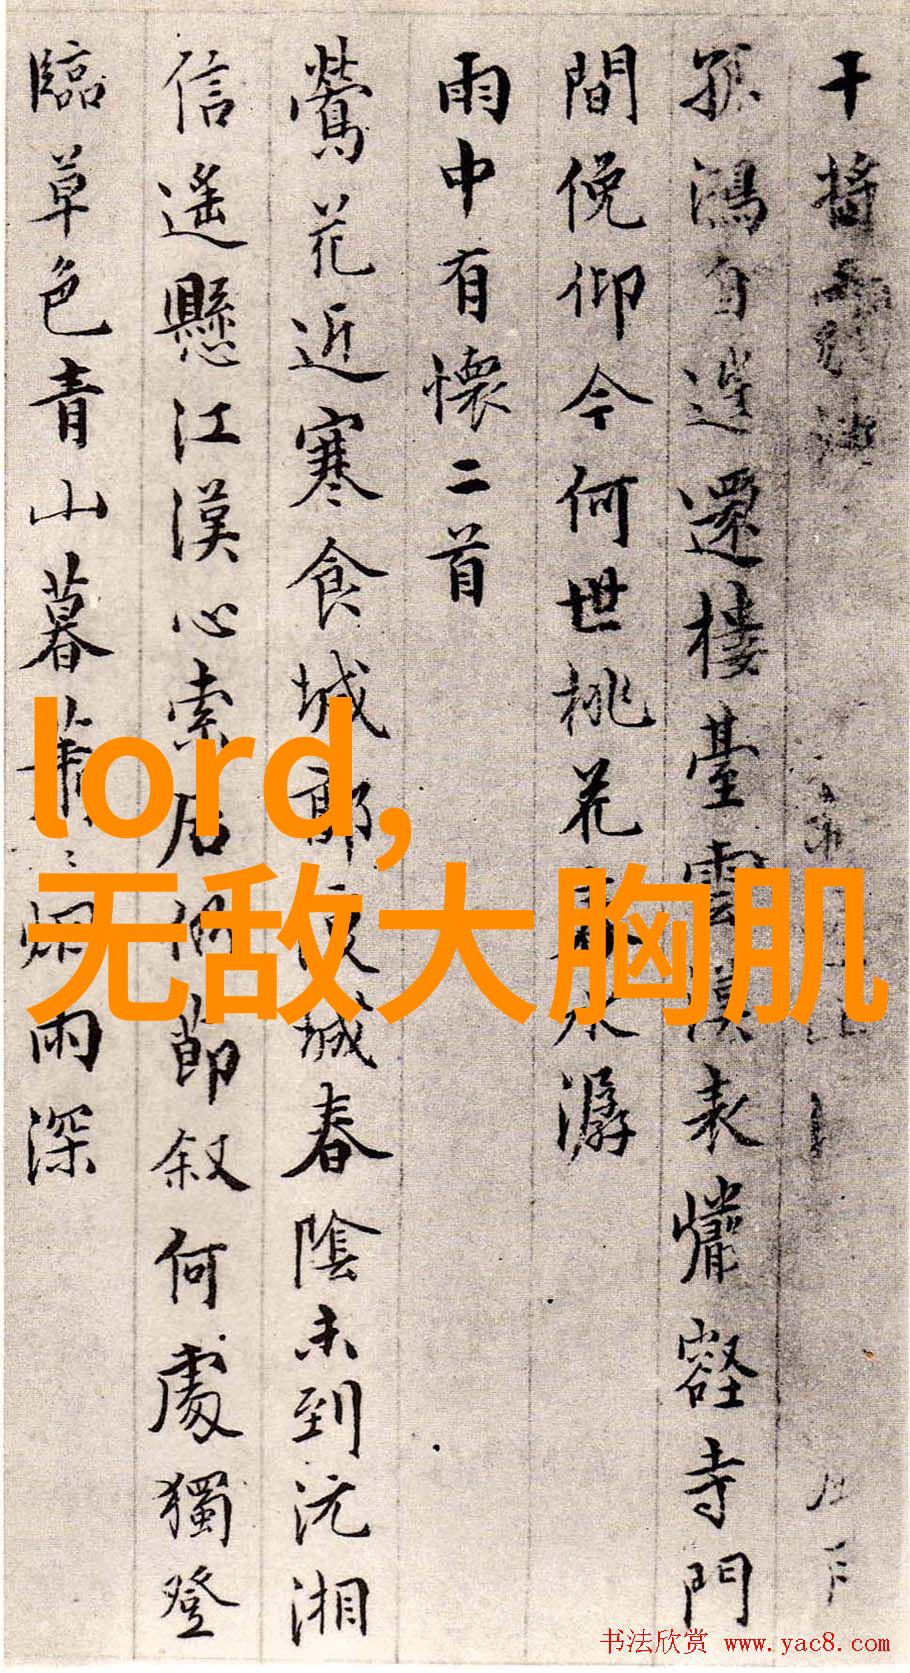 干將
孤鴻自送還樓臺雲漢表懽壑寺門
間俛仰今何世桃花春水潺
雨中有懷二首
鶯花近寒食城郭復城春陰未到沅湘
信遥懸江漢心索居何節叙何處獨登
臨草色青山暮萧烟雨深
lord,
无敌大胸肌
书法欣赏 www.yac8.com